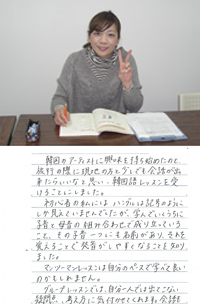 韓国のアーティストに興味を持ち始めたのと、
旅行の際に現地の方と少しでも会話が出
来たらいいなと思い、韓国語レッスンを受
けることにしました。
初心者の私には、ハングルは記号のように
しか見えていませんでしたが、学んでいくうちに
子音と母音の組み合わせで成り立っている
こと、その子音一つにも名前があり、それを
覚えることで発音がしやすくなることを知り
ました。
マンツーマンレッスンは自分のペースで学べて良い
かもしれません。
グループレッスンでは、自分一人では出てこない
疑問点、考え方に気付かせてくれます。会話を